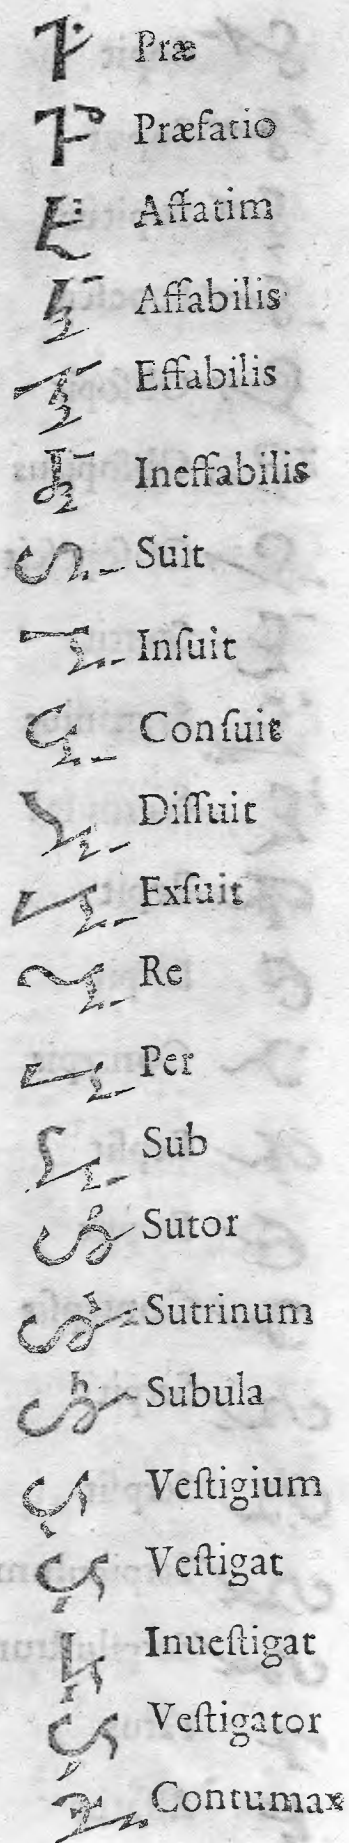 Præ
Præfatio
Affatim
Affabilis
Effabilis
Ineffabilis
Suit
Inſuit
Conſuit
Diſſuit
Exſuit
Re
Per
Sub
Sutor
Sutrinum
Subula
Veſtigium
Veſtigat
Inueſtigat
Veſtigator
Contumax